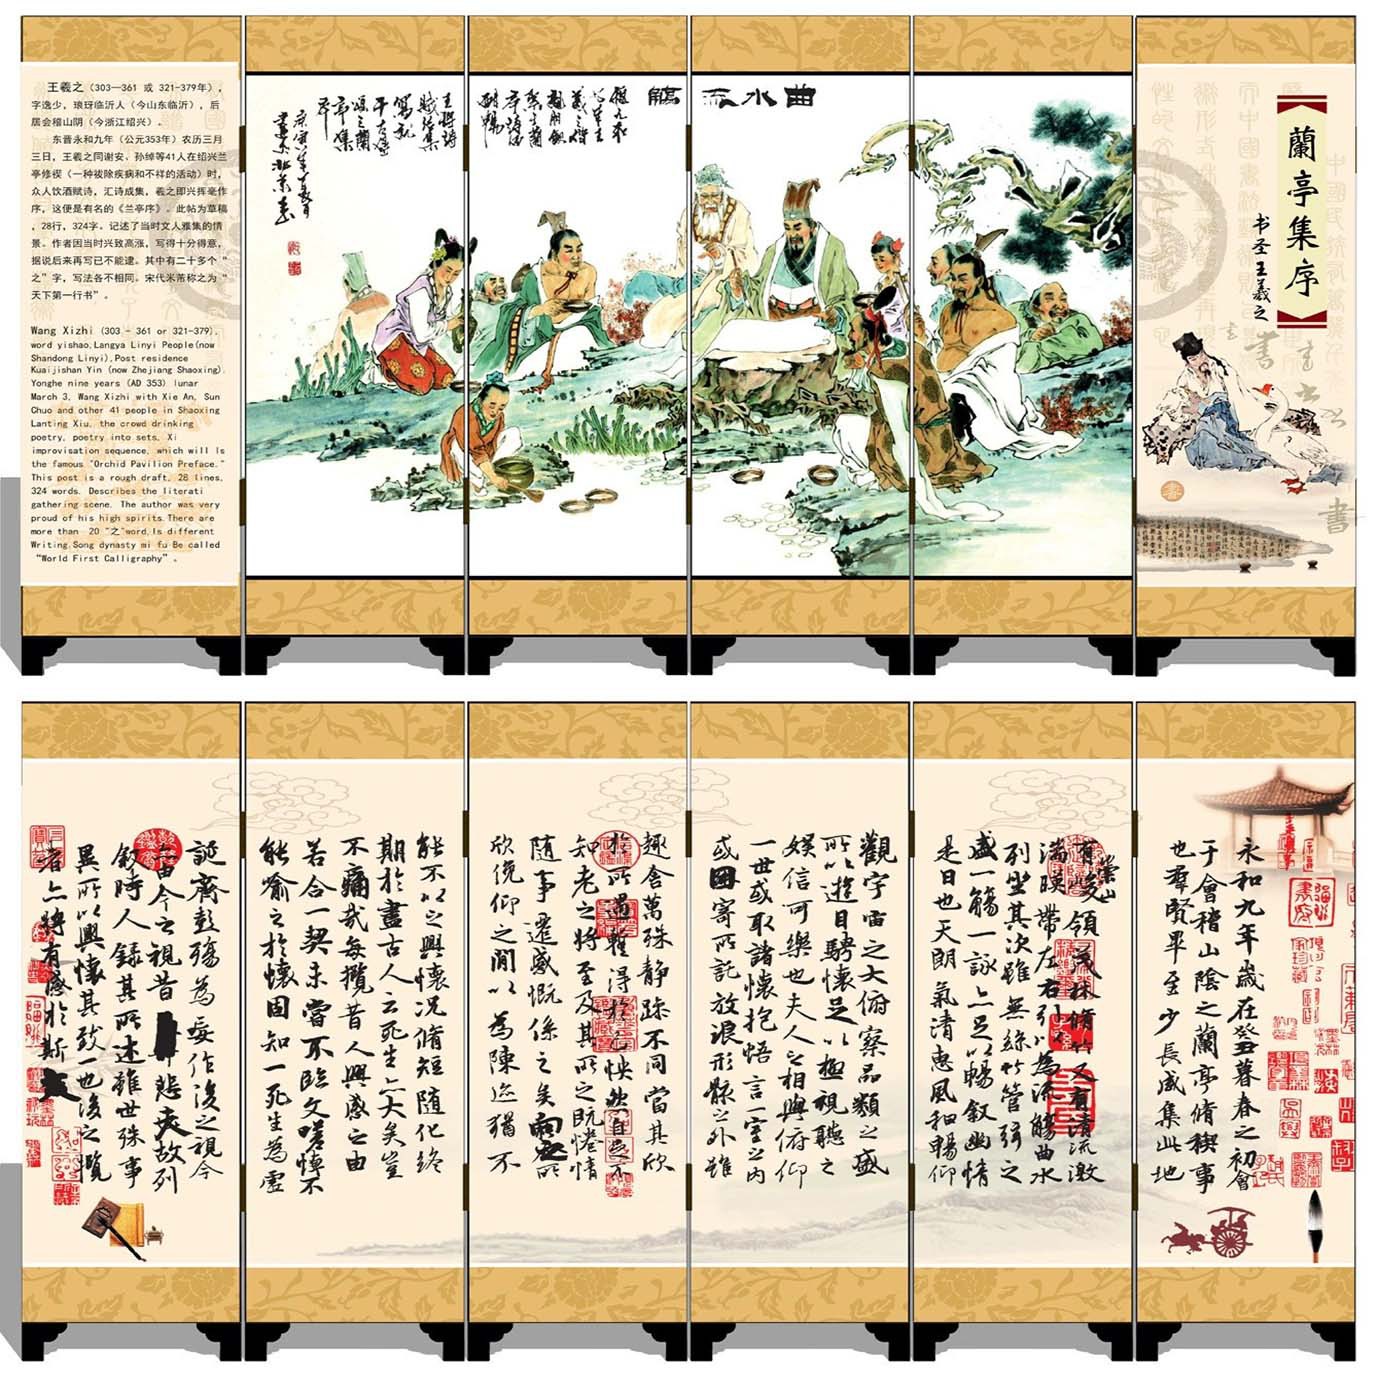 王羲之（303—361 或 321-379年），
字逸少，琅玡临沂人（今山东临沂），后
居会稽山阴（今浙江绍兴）。
东晋永和九年（公元353年）农历三月
三日，王羲之同谢安、孙绰等41人在绍兴兰
亭修禊（一种祓除疾病和不祥的活动）时，
众人饮酒赋诗，汇诗成集，羲之即兴挥毫作
序，这便是有名的《兰亭序》。此帖为草稿
，28行，324字。记述了当时文人雅集的情
景。作者因当时兴致高涨，写得十分得意，
据说后来再写已不能逮。其中有二十多个“
之”字，写法各不相同。宋代米芾称之为“
天下第一行书”。
Wang Xizhi (303 - 361 or 321-379),
word yishao,Langya Linyi People(now
Shandong Linyi),Post residence
Kuaijishan Yin (now Zhejiang Shaoxing).
Yonghe nine years (AD 353) lunar
March 3, Wang Xizhi with Xie An, Sun
Chuo and other 41 people in Shaoxing
Lanting Xiu, the crowd drinking
poetry, poetry into sets, Xi
improvisation sequence, which will Is
the famous "Orchid Pavilion Preface."
This post is a rough draft, 28 lines,
324 words. Describes the literati
gathering scene. The author was very
proud of his high spirits.There are
more than 20 "之"word,Is different
Writing.Song dynasty mi fu Be called
“World First Calligraphy”。
曲水流觴
蘭亭集序
书圣王羲之
永和九年歲在癸丑暮春之初會
于會稽山陰之蘭亭脩稧事
也羣賢畢至少長咸集此地
有崇山峻領茂林脩竹又有清流激
湍暎帶左右引以為流觴曲水
列坐其次雖無絲竹管弦之
盛一觴一詠亦足以暢敘幽情
是日也天朗氣清惠風和暢仰
觀宇宙之大俯察品類之盛
所以遊目騁懷足以極視聽之
娛信可樂也夫人之相與俯仰
一世或取諸懷抱悟言一室之內
或因寄所託放浪形骸之外雖
趣舍萬殊靜躁不同當其欣
於所遇暫得於己怏然自足不
知老之將至及其所之既惓情
隨事遷感慨係之矣向之所
欣俛仰之閒以為陳迹猶不
能不以之興懷況脩短隨化終
期於盡古人云死生亦大矣豈
不痛哉每攬昔人興感之由
若合一契未嘗不臨文嗟悼不
能喻之於懷固知一死生為虛
誕齊彭殤為妄作後之視今
亦由今之視昔悲夫故列
敘時人錄其所述雖世殊事
異所以興懷其致一也後之攬
者亦將有感於斯文